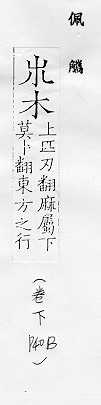 佩觿
𣎳木
上匹刃翻麻屬下
莫卜翻東方之行
(卷下 P40B)